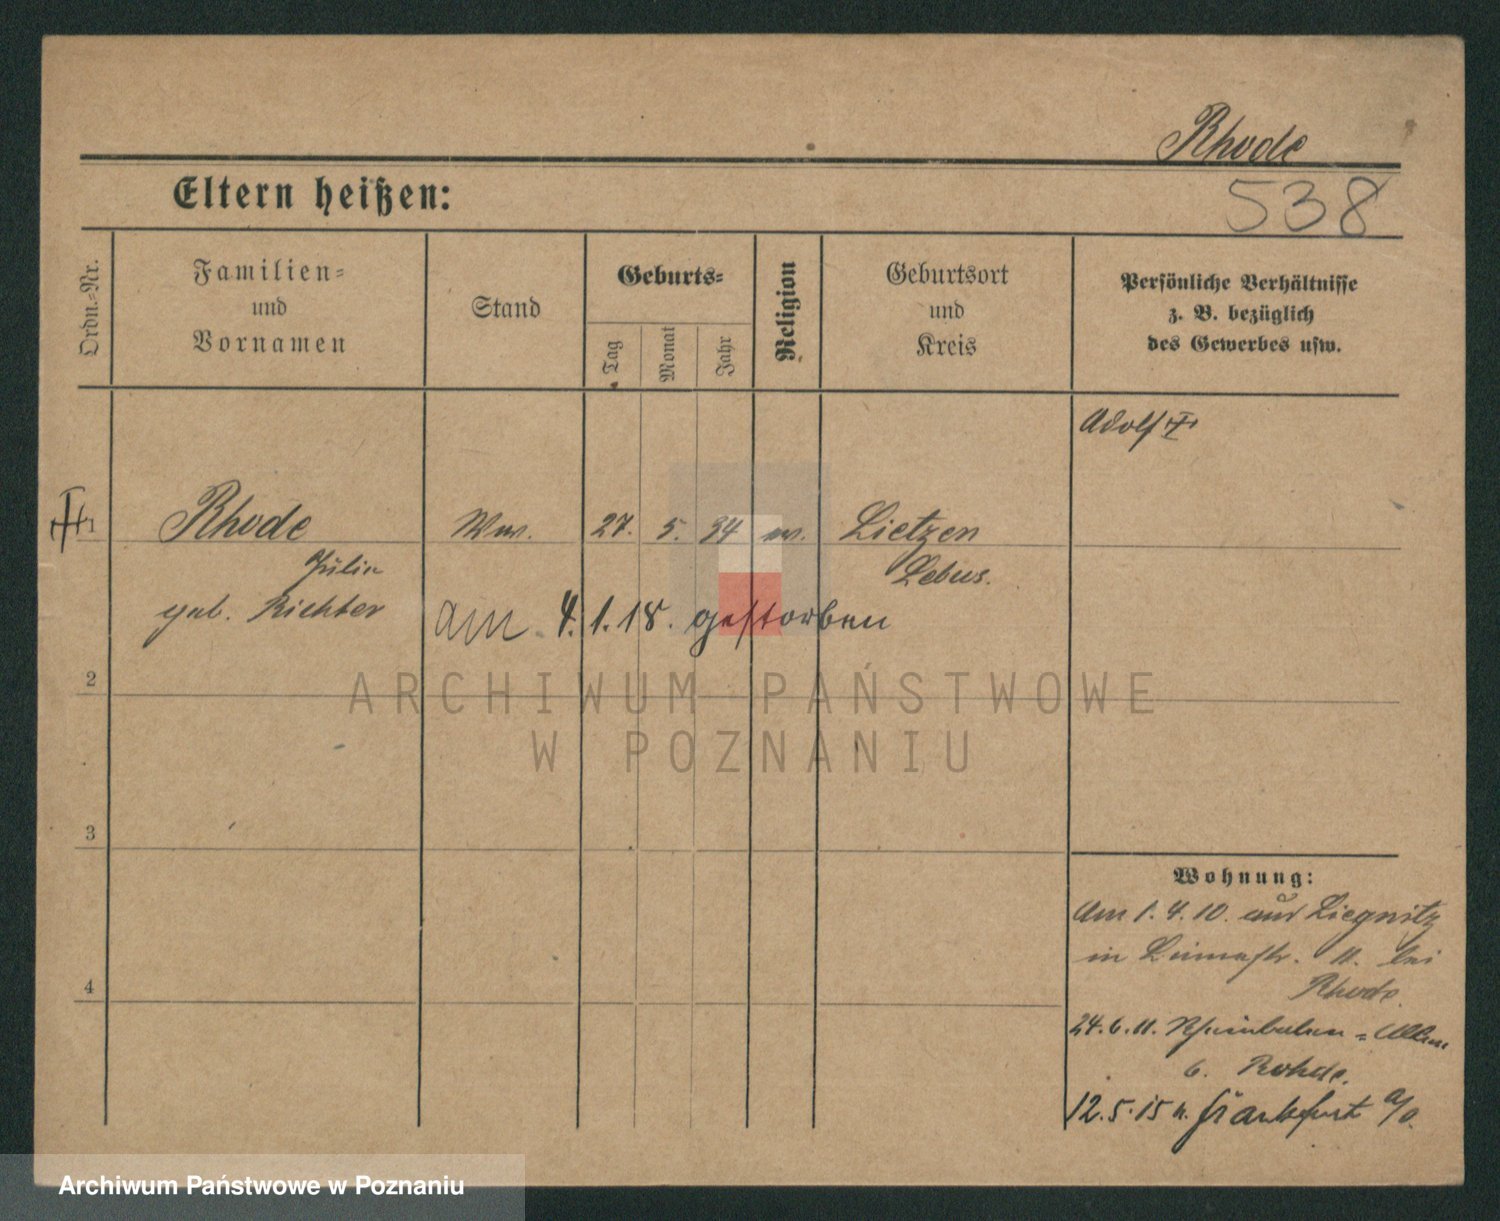 Rhode
Eltern heißen:
538
Ordn.=Nr.
Familien=
und
Vornamen
Stand
Geburts=
Tag
Monat
Jahr
Religion
Geburtsort
und
Kreis
Persönliche Verhältnisse
z. B. bezüglich
des Gewerbes usw.
Adolf
1
Rhode
Ww.
27.
5.
34
ev.
Lietzen
Julie
Lebus.
geb. Richter
am 4.1.18. gestorben
2
ARCHIWUM PAŃSTWOWE
W POZNANIU
3
Wohnung:
Am 1.4.10. aus Liegnitz
in 11. bei
Rhode.
4
24.6.11.
b. Rohde.
12.5.15 n. Frankfurt a/O.
Archiwum Państwowe w Poznaniu